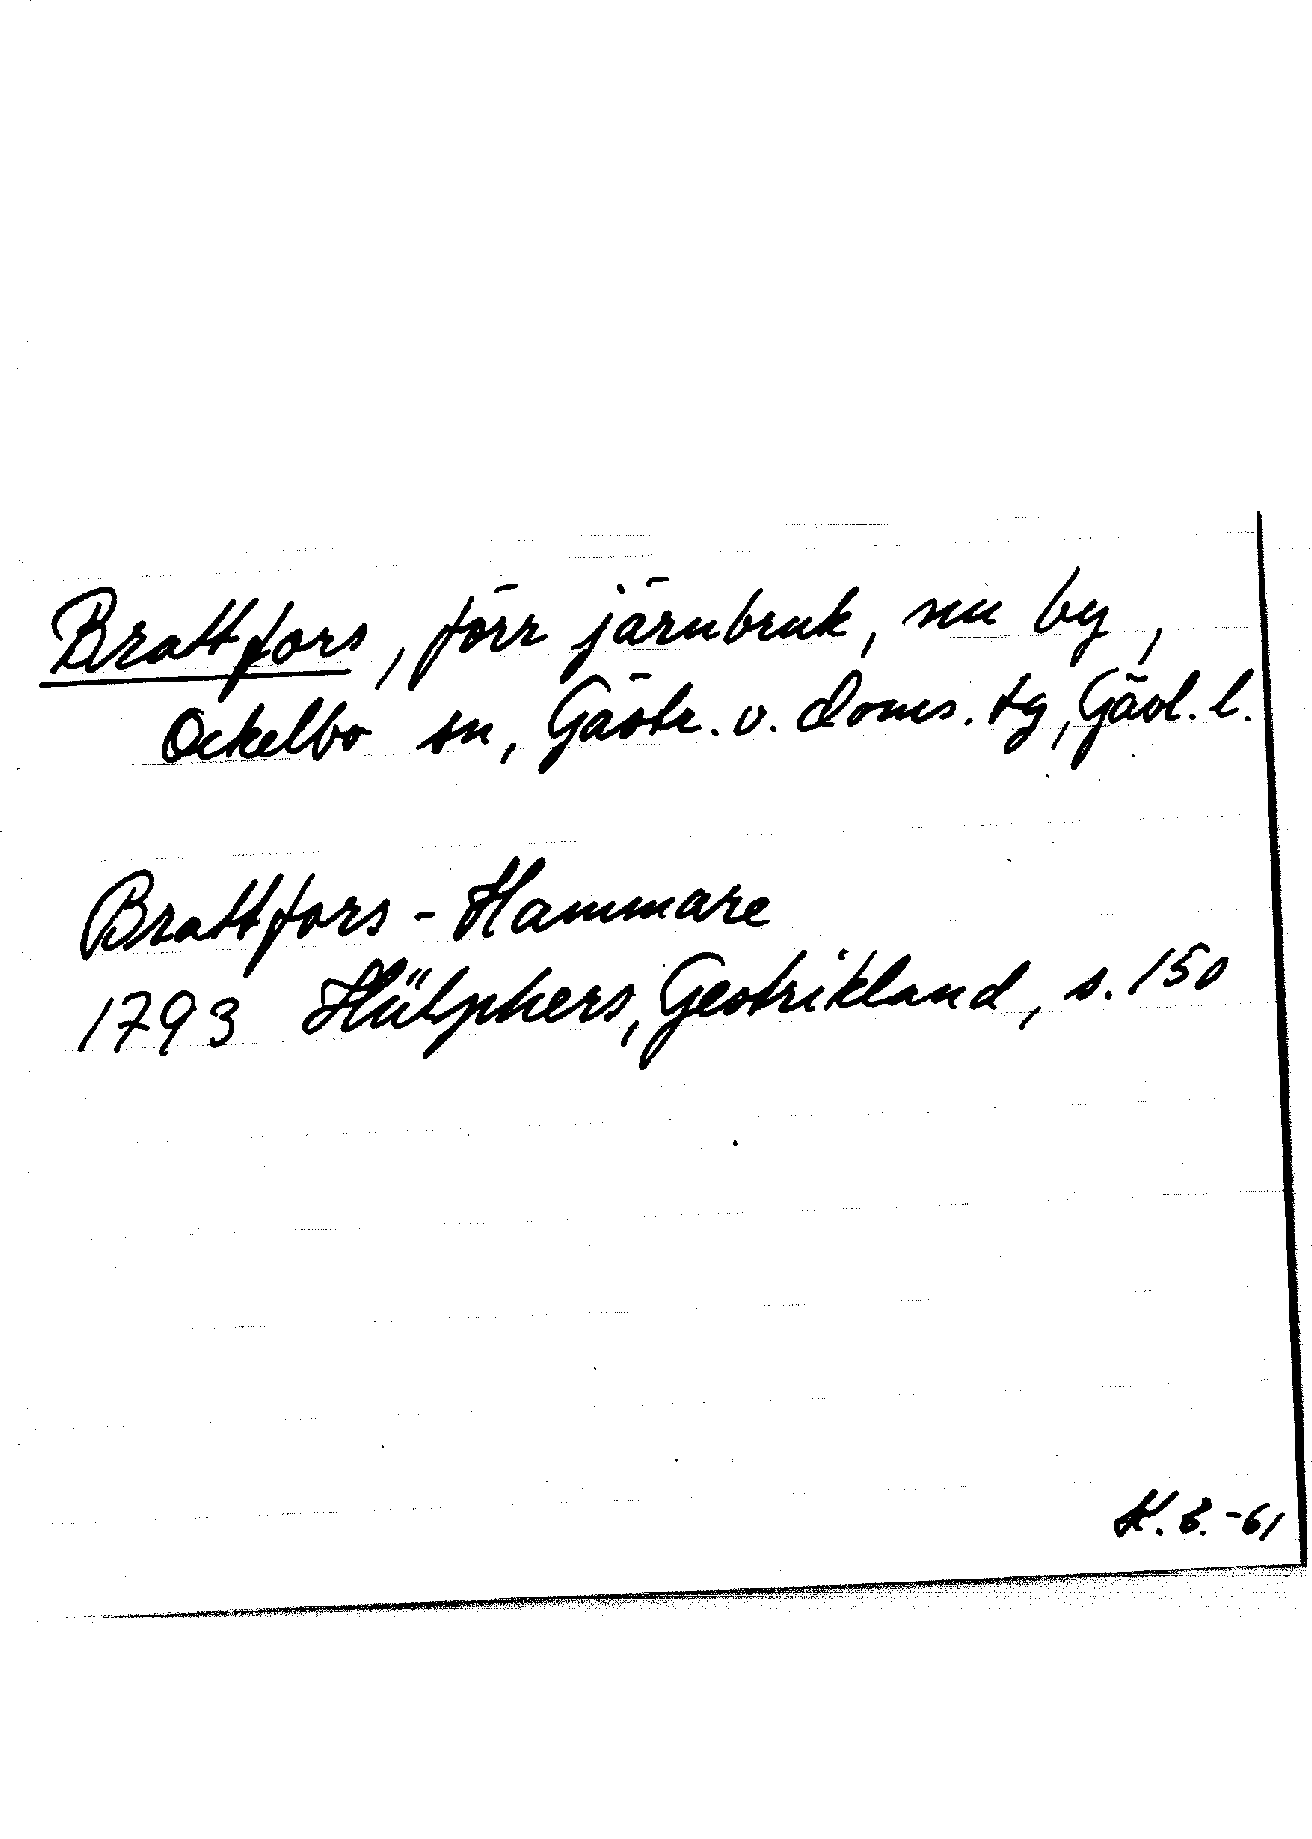 Brattfors, förr järnbruk, nu by,
Ockelbo sn, Gästr. v. doms. tg, Gävl. l.
Brattfors-Hammare
1793 Hülphers, Gestrikland, s. 150
H. B. -61